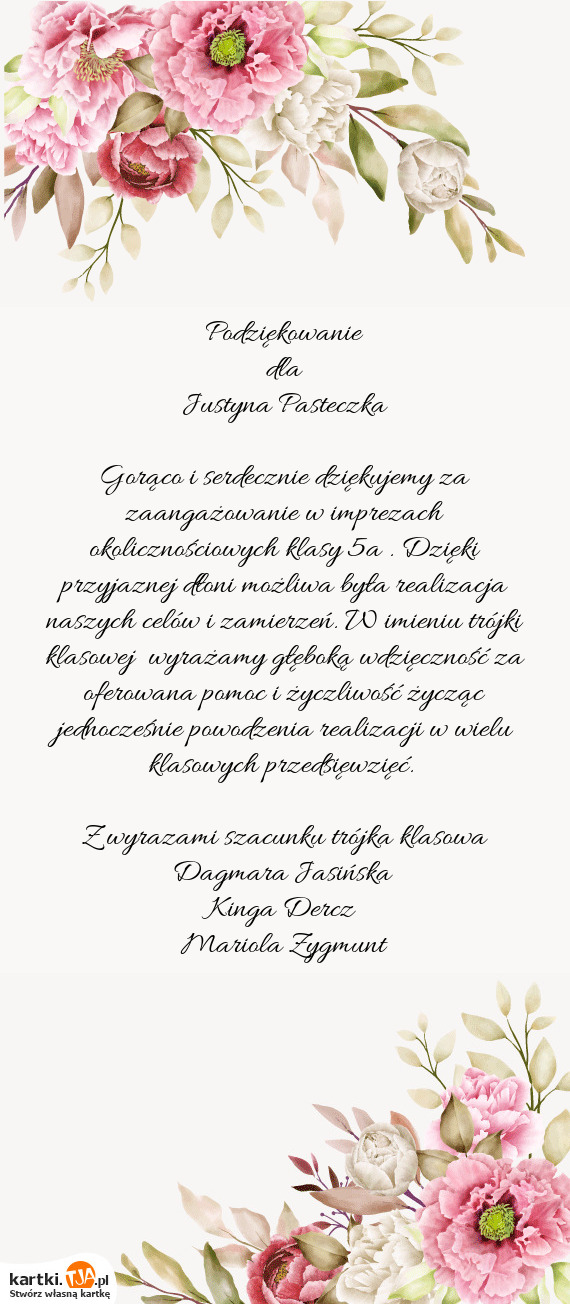 Podziękowanie
dla
Justyna Pasteczka
Gorąco i serdecznie dziękujemy za
zaangażowanie w imprezach
okolicznościowych klasy 5a . Dzięki
przyjaznej dłoni możliwa była realizacja
naszych celów i zamierzeń. W imieniu trójki
klasowej wyrażamy głęboką wdzięczność za
oferowana pomoc i życzliwość życząc
jednocześnie powodzenia realizacji w wielu
klasowych przedsięwzięć.
Z wyrazami szacunku trójka klasowa
Dagmara Jasińska
Kinga Dercz
Mariola Zygmunt
kartki.TJA.pl
Stwórz własną kartkę